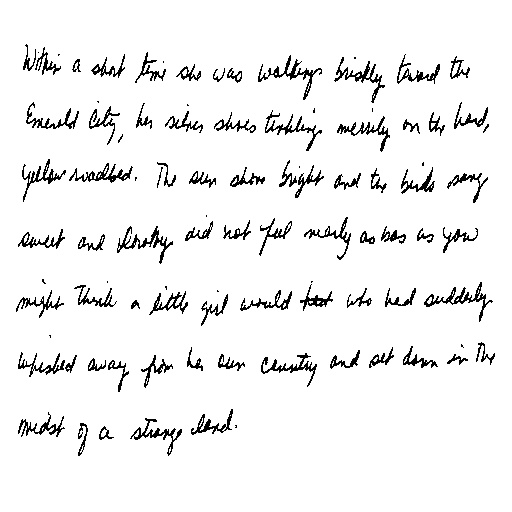 Within a short time she was walking briskly toward the
Emerald City, her silver shoes tinkling merrily on the hard,
yellow roadbed. The sun shone bright and the birds sang
sweet and Dorothy did not feel nearly as bad as you
might think a little girl would who had suddenly
whisked away from her own country and set down in the
midst of a strange land.